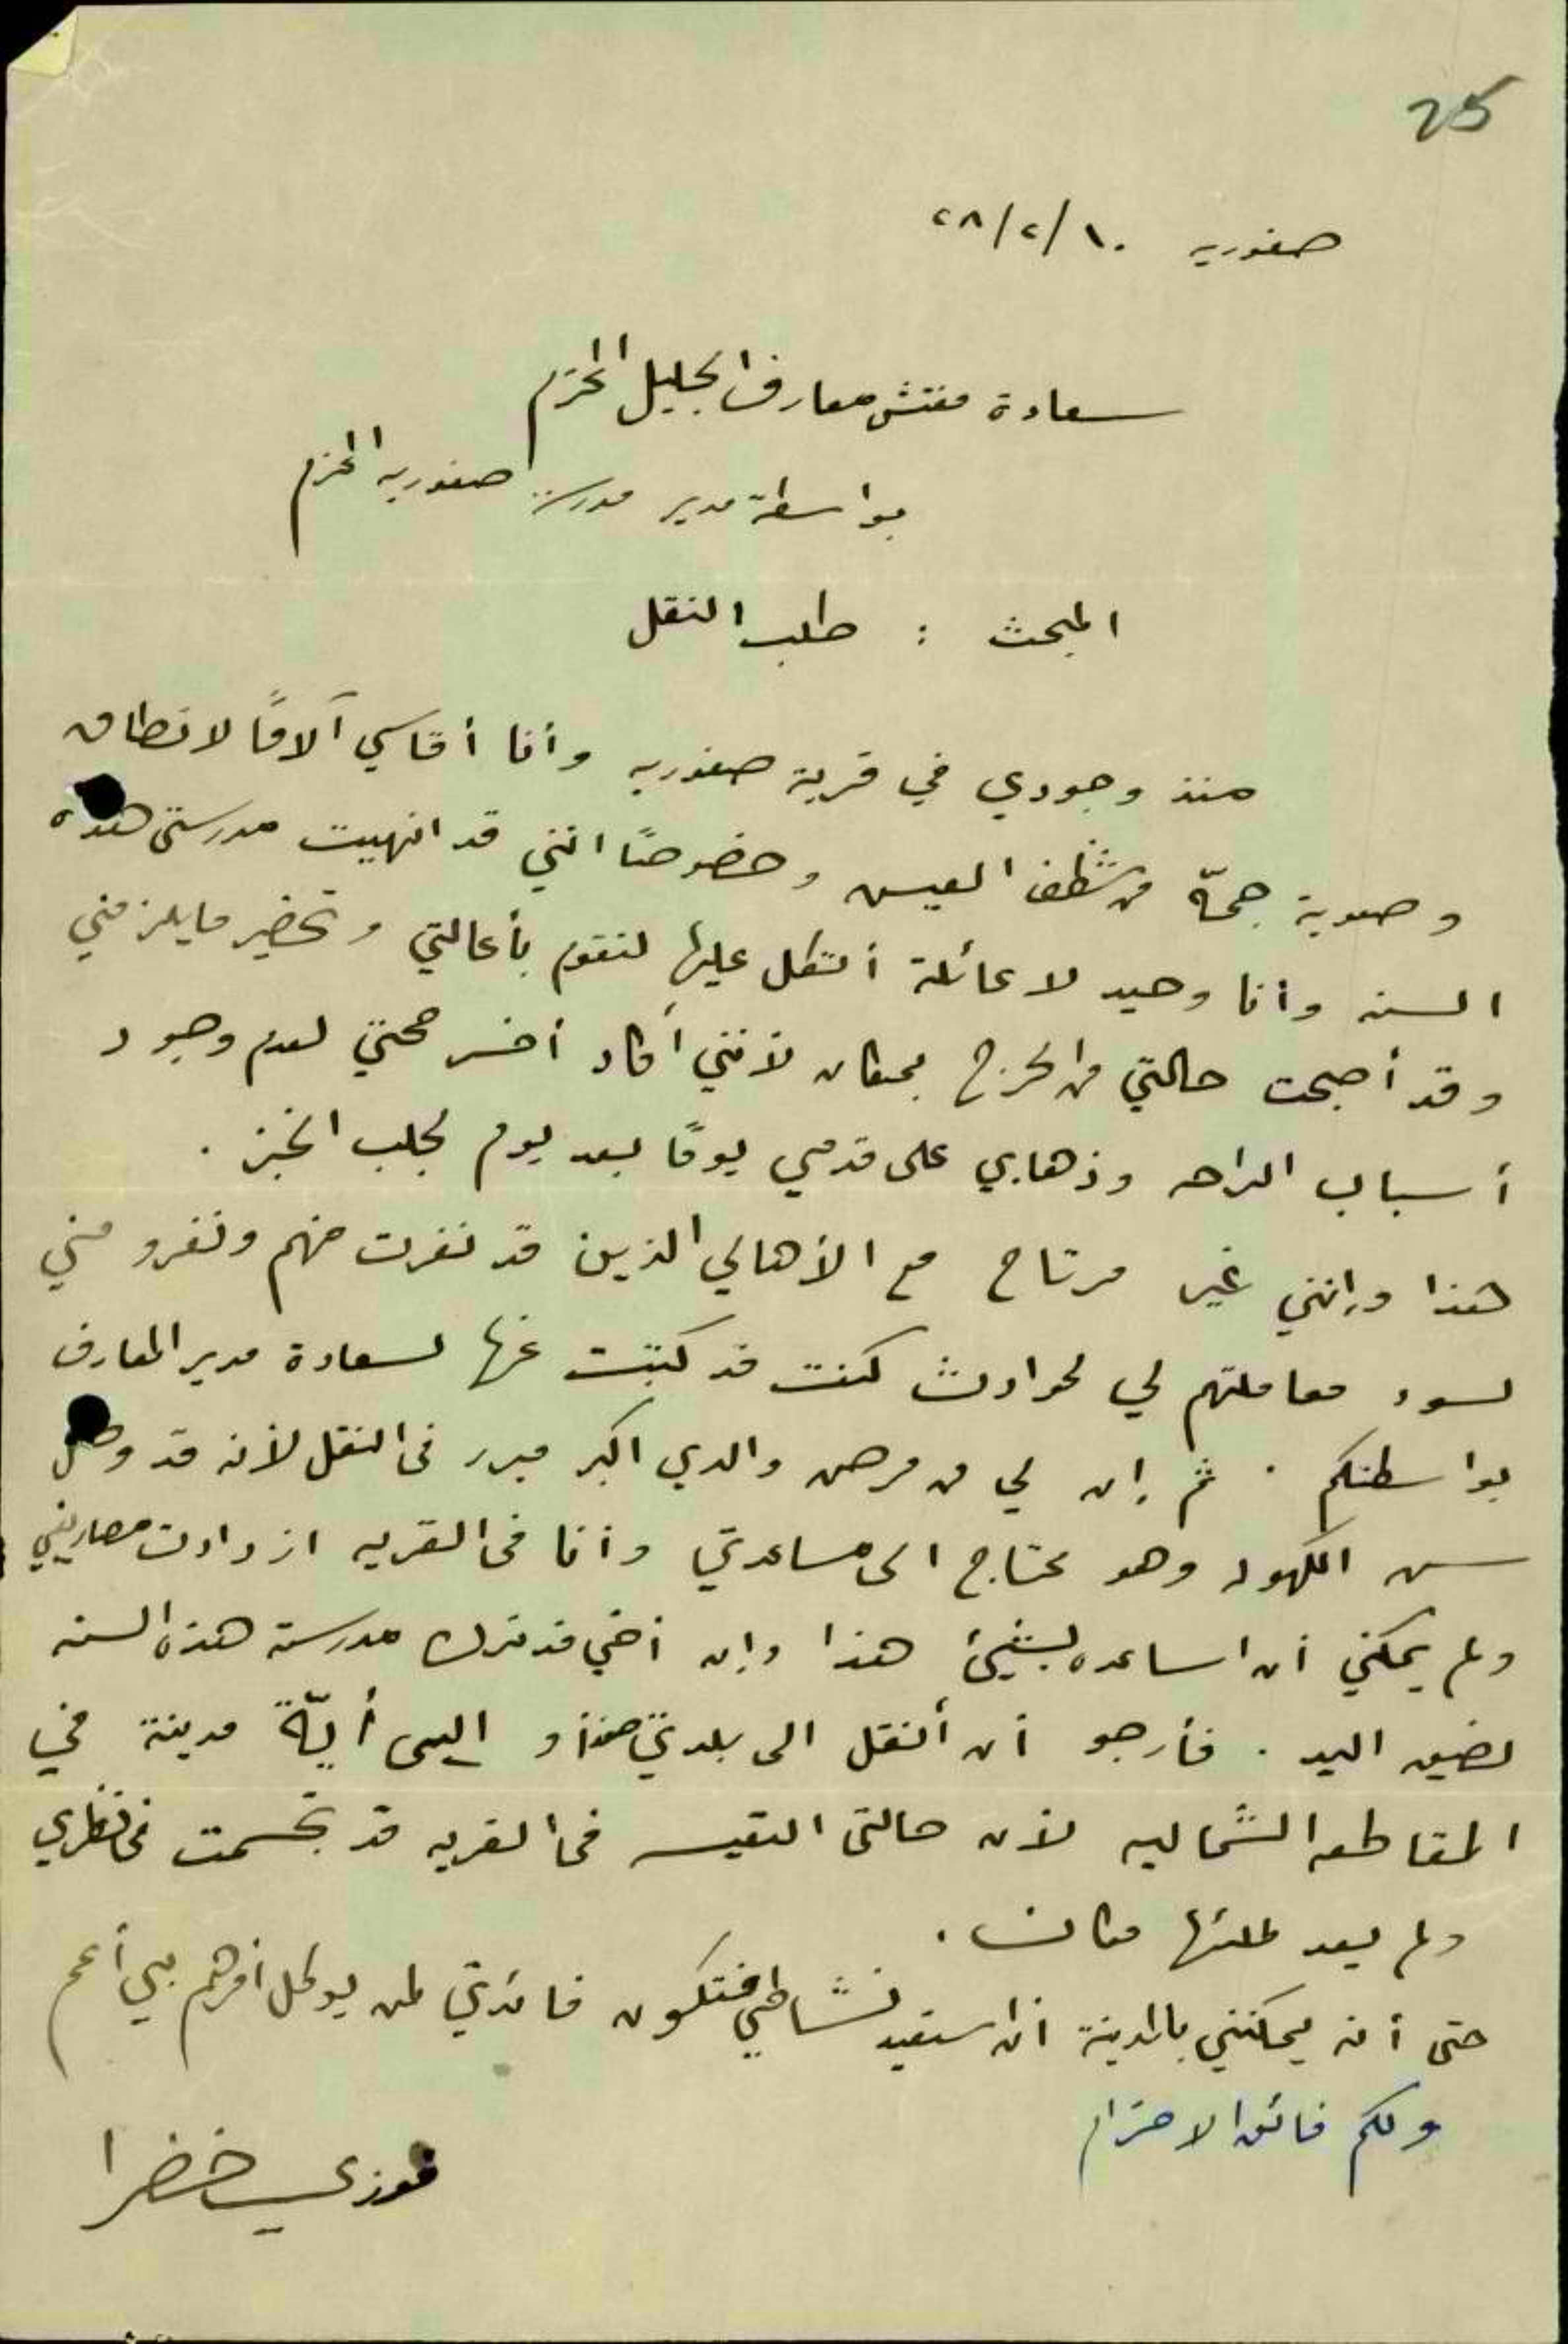 25
صفوريه ١٠/٢/٢٨
سعادة مفتش معارف الجليل المحترم
بواسطة مدير مدرسة صفوريه المحترم
المبحث : طلب النقل
منذ وجودي في قرية صفوريه وأنا أقاسي آلامًا لا تطاق
وصعوبة جمّة من شظف العيش وخصوصًا انني قد انهيت مدرستي هذه
السنه وأنا وحيد لا عائلة أتكل عليها لتقوم بأعالتي وتحضير ما يلزمني
وقد أصبحت حالتي من الحرج بمكان لأنني أكاد أخسر صحتي لعدم وجود
أسباب الراحه وذهابي على قدمي يومًا بعد يوم لجلب الخبز .
هذا وإنني غير مرتاح مع الأهالي الذين قد نفرت منهم ونفرو مني
لسوء معاملتهم لي لحوادث كنت قد كتبت عنها لسعادة مدير المعارف
بواسطتكم . ثم إن لي من مرض والدي اكبر مبرر في النقل لأنه قد وصل
سن الكهوله وهو محتاج الى مساعدتي وأنا في القريه ازدادت مصاريفي
ولم يمكني أن اساعده بشيئ هذا وإن أخي قد ترك مدرسته هذه السنه
لضيق اليد . فأرجو أن أنقل الى بلدتي صفد أو الى أيّة مدينة في
المقاطعه الشماليه لأن حالتي التعيسه في القريه قد تجسمت في نظري
ولم يعد لملئها مكان .
حتى أنه يمكنني بالمدينة أن استعيد نشاطي فتكون فائدتي لمن يوكل أمرهم بي أعم
ولكم فائق الاحترام
فوزي خضرا